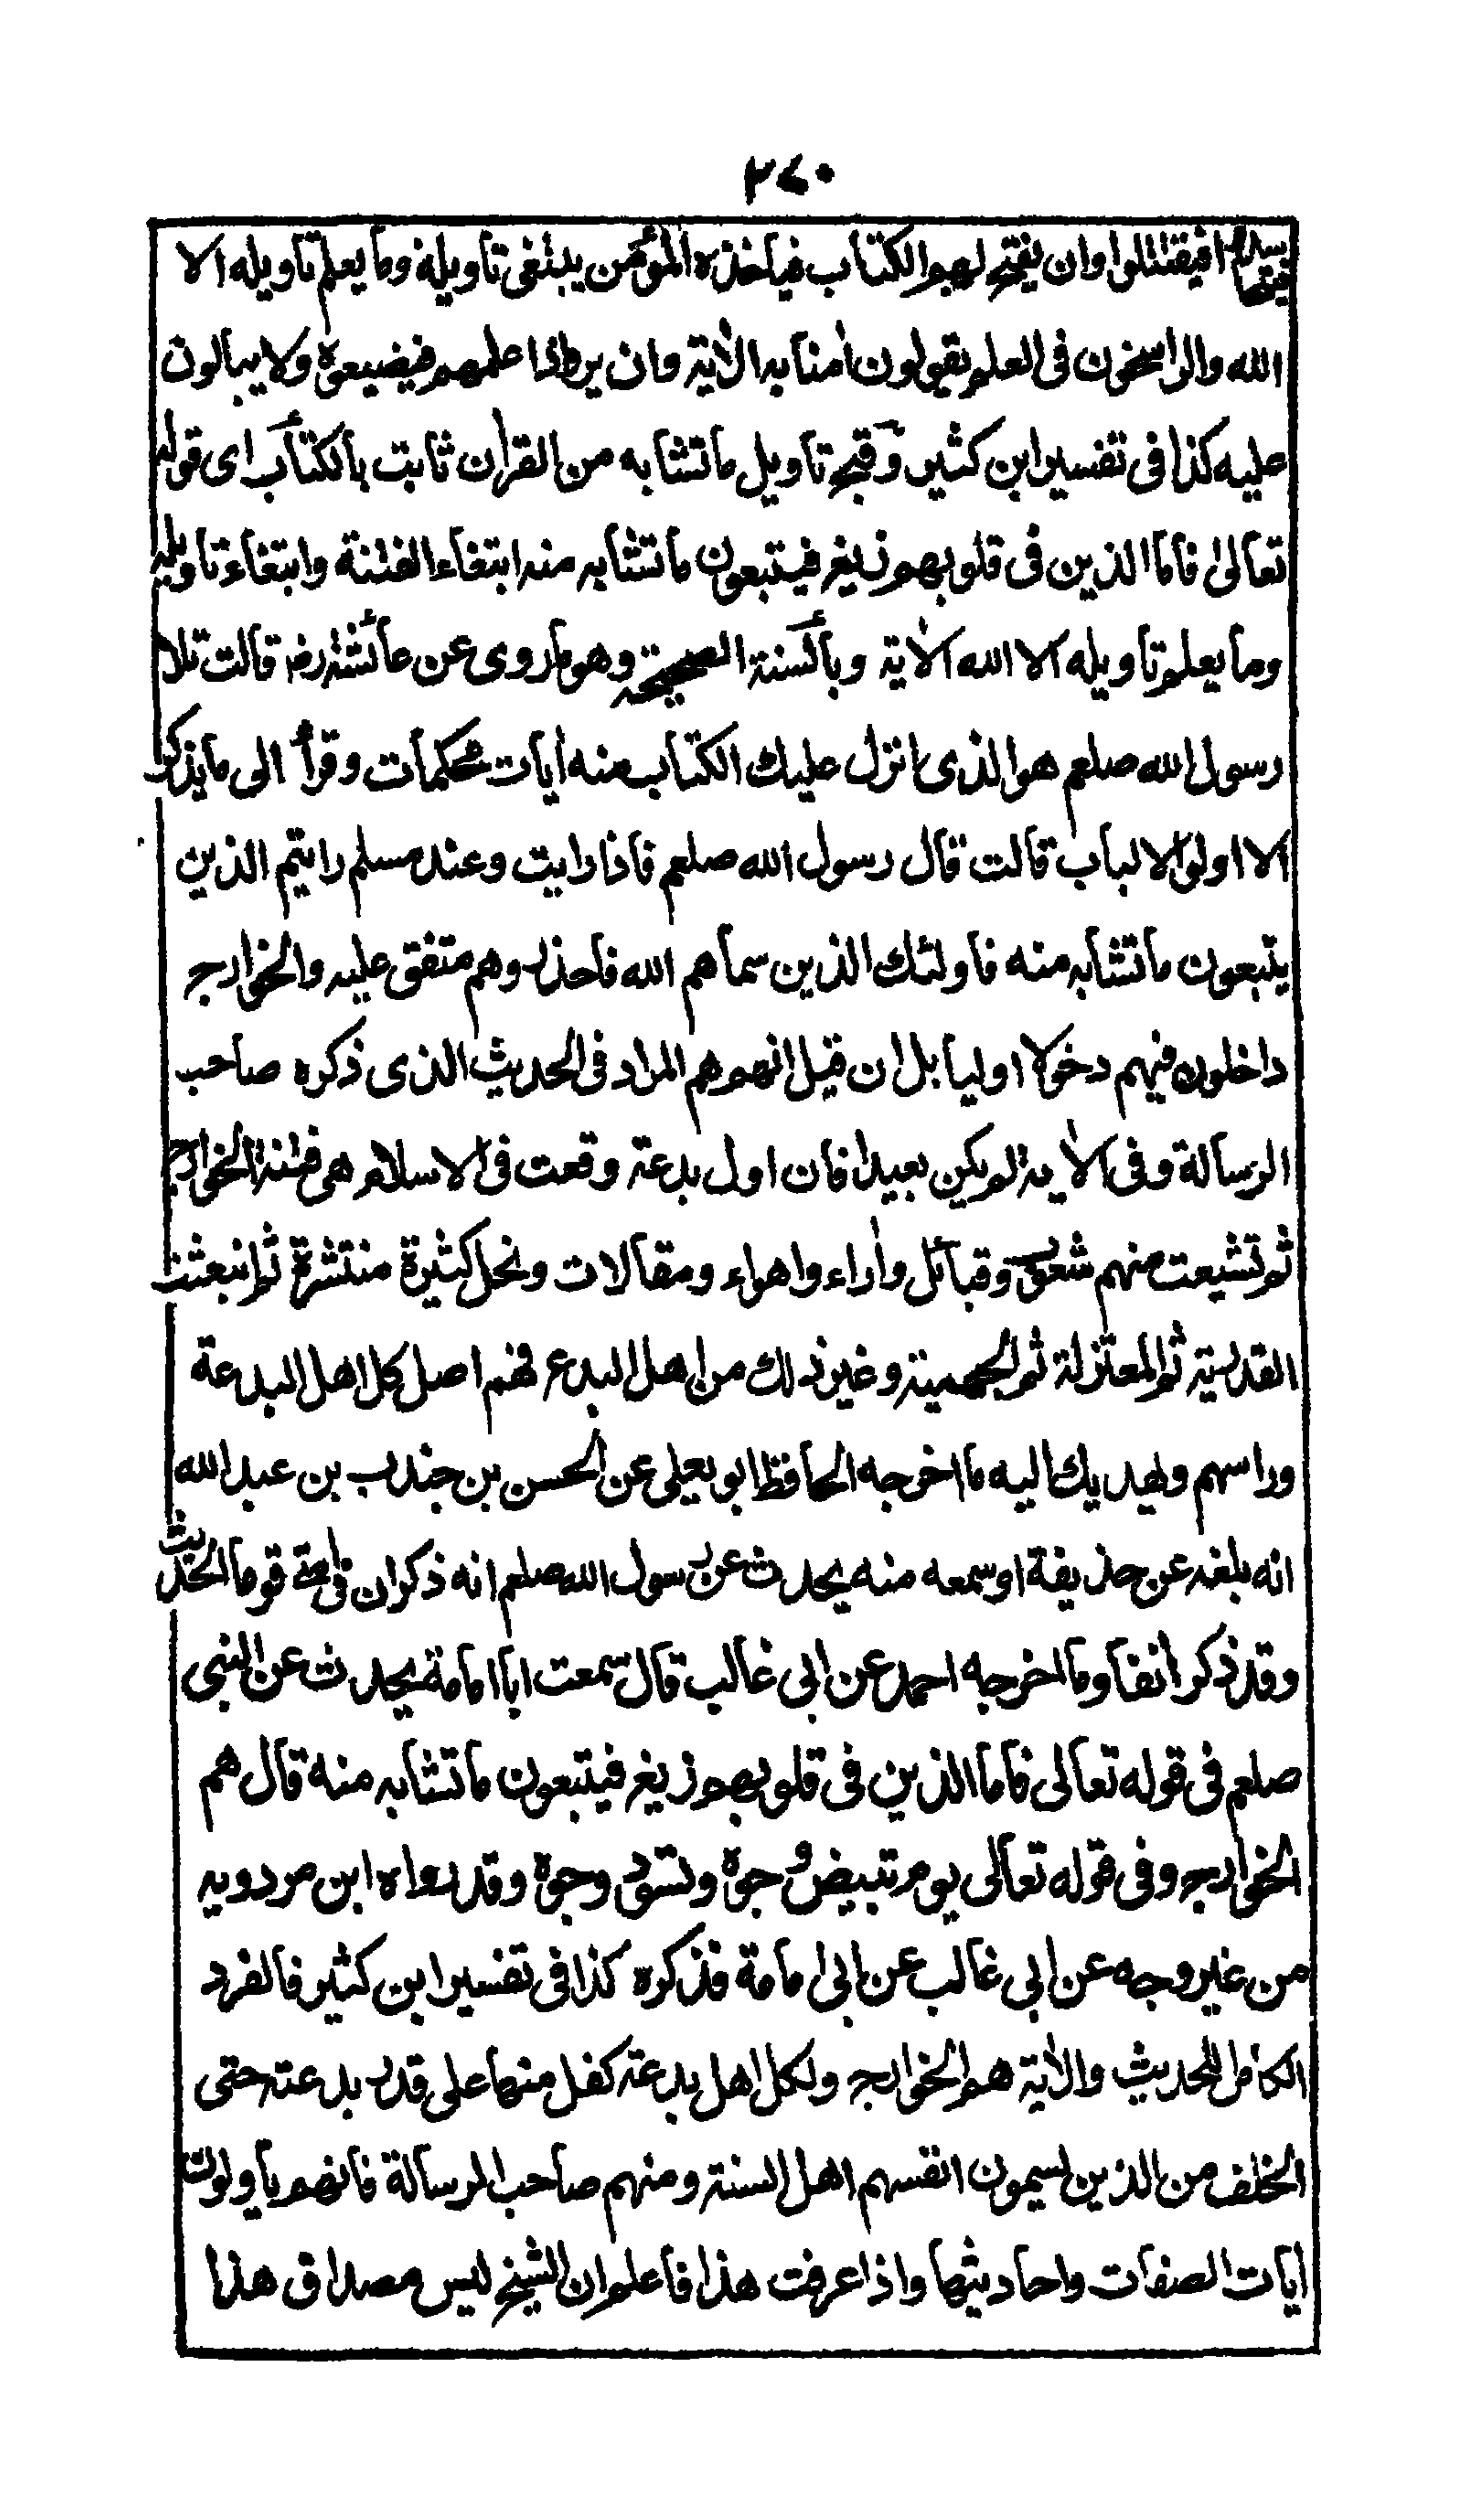 ٣٤٠
فيقتتلوا وان يفتح لهم الكتاب فياخذه المؤمن يبتغى تاويله وما يعلم تاويله الا
الله والراسخون فى العلم يقولون اٰمنا به الاٰية وان يرواذا علمهم فيضيعوه ولا يبالون
عليه كذا فى تفسير ابن كثير وقبح تاويل ما تشابه من القراٰن ثابت بالكتاب اى قوله
تعالىٰ فاما الذين فى قلوبهم زيغ فيتبعون ما تشابه منه ابتغاء الفتنة وابتغاء تاويله
وما يعلم تاويله الا الله الاٰية وبالسنة الصحيحة وهو ما روى عن عائشة رض قالت تلا
رسول الله صلعم هو الذى انزل عليك الكتاب منه اٰيات محكمات وقرأ الى ما يذكر
الا اولوا الالباب قالت قال رسول الله صلعم فاذا رايت وعند مسلم رايتم الذين
يتبعون ما تشابه منه فاولئك الذين سماهم الله فاحذروهم متفق عليه والخوارج
داخلون فيهم دخولا اوليا بل ان قيل انهم هم المراد فى الحديث الذى ذكره صاحب
الرسالة وفى الاٰية لم يكن بعيدا فان اول بدعة وقعت فى الاسلام هى فتنة الخوارج
ثم تشيعت منهم شعوب وقبائل واٰراء واهواء ومقالات ونحل كثيرة منتشرة ثم انبعثت
القدرية ثم المعتزلة ثم الجهمية وغير ذلك من اهل البدع فهم اصل كل اهل البدعة
وراسهم ويهديك اليه ما اخرجه الحافظ ابو يعلى عن الحسن بن جندب بن عبد الله
انه بلغه عن حذيفة او سمعه منه يحدث عن رسول الله صلعم انه ذكر ان فى امتى قوما الحديث
وقد ذكر اٰنفا وما اخرجه احمد عن ابى غالب قال سمعت ابا امامة يحدث عن النبى
صلعم فى قوله تعالى فاما الذين فى قلوبهم زيغ فيتبعون ما تشابه منه قال هم
الخوارج وفى قوله تعالى يوم تبيض وجوه وتسود وجوه وقد رواه ابن مردويه
من غير وجه عن ابى غالب عن ابى امامة فذكره كذا فى تفسير ابن كثير فالفرد
الكامل للحديث والاٰية هم الخوارج ولكل اهل بدعة كفل منها على قدر بدعته حتى
الخلف من الذين يسمون انفسهم اهل السنة ومنهم صاحب الرسالة فانهم ياولون
اٰيات الصفات واحاديثها واذا عرفت هذا فاعلم ان الشيخ ليس مصداق هذا